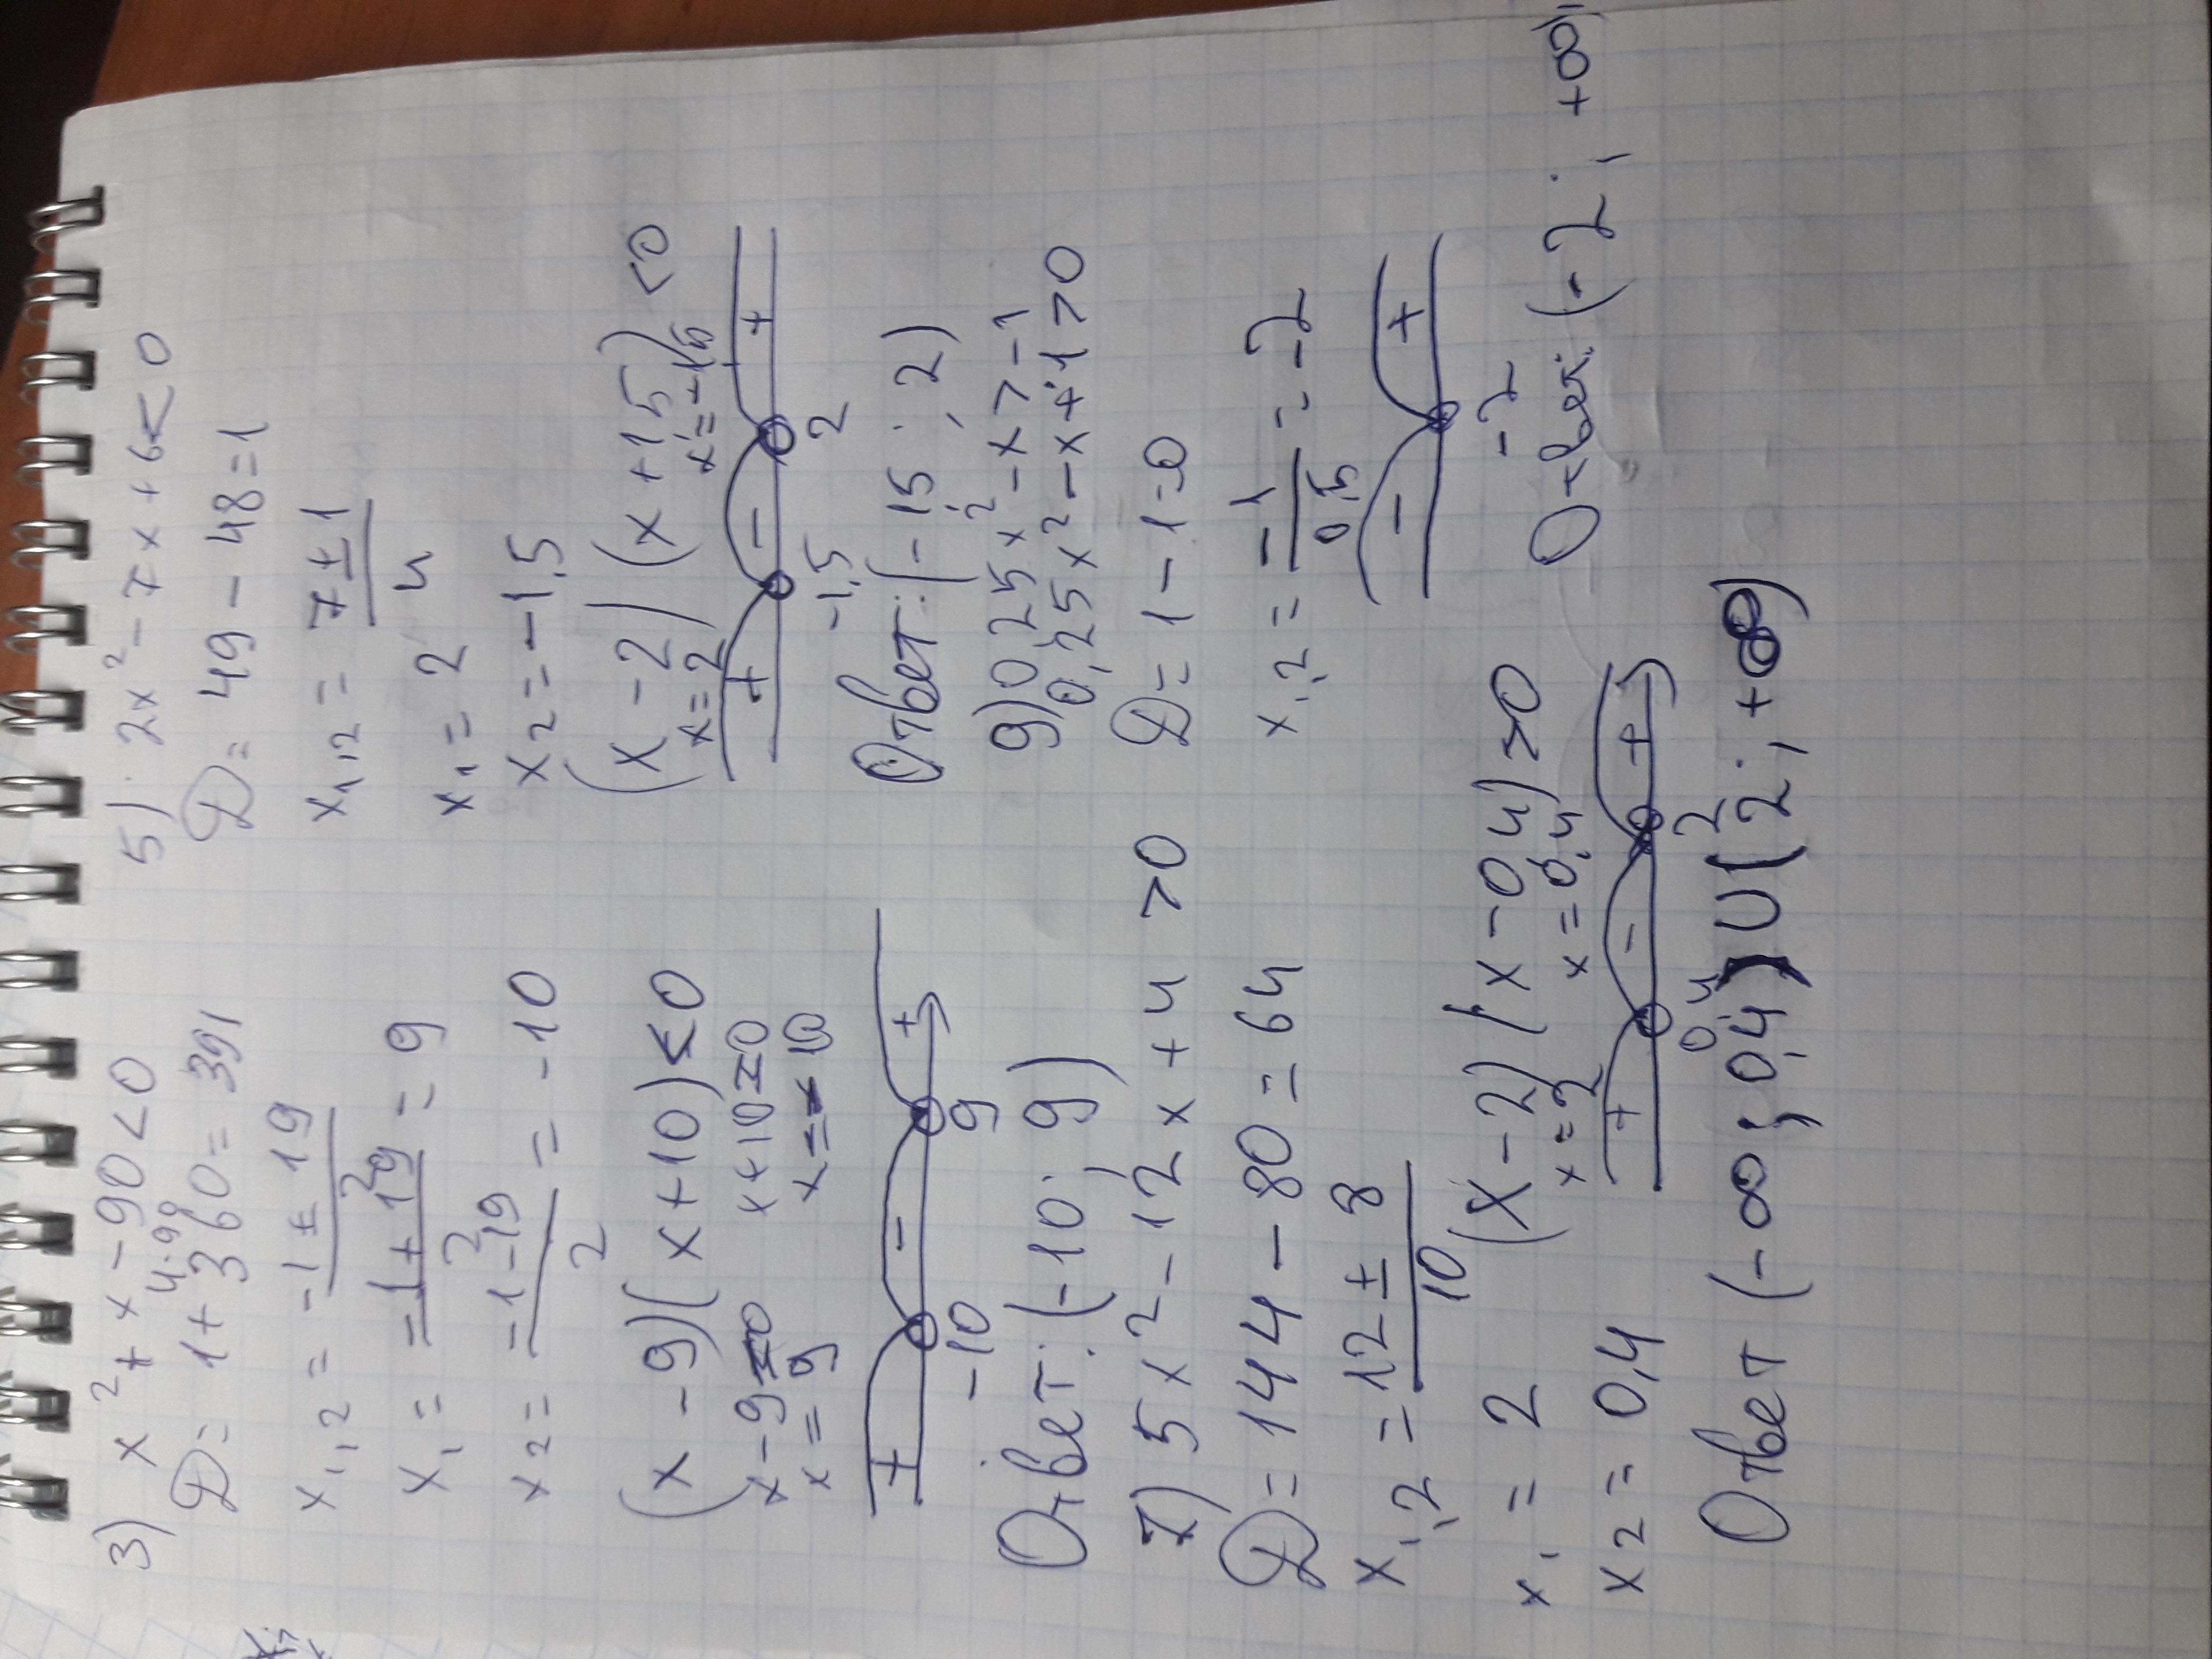 3) x² + x - 90 < 0
4·90
D = 1 + 360 = 391
x₁,₂ = -1 ± 19 / 2
x₁ = -1 + 19 / 2 = 9
x₂ = -1 - 19 / 2 = -10
(x - 9)(x + 10) < 0
x - 9 = 0 x + 10 = 0
x = 9 x = -10
+ - +
-10 9
Ответ: (-10; 9)
7) 5x² - 12x + 4 > 0
D = 144 - 80 = 64
x₁,₂ = 12 ± 8 / 10
x₁ = 2
x₂ = 0,4
(x - 2)(x - 0,4) > 0
x = 2 x = 0,4
+ - +
0,4 2
Ответ (-∞; 0,4) ∪ (2; +∞)
5) 2x² - 7x + 6 < 0
D = 49 - 48 = 1
x₁,₂ = 7 ± 1 / 4
x₁ = 2
x₂ = -1,5
(x - 2)(x + 1,5) < 0
x = 2 x = -1,5
+ - +
-1,5 2
Ответ: (-1,5; 2)
9) 0,25x² - x > -1
0,25x² - x + 1 > 0
D = 1 - 1 = 0
x₁,₂ = -1 / 0,5 = -2
- +
-2
Ответ: (-2; +∞)